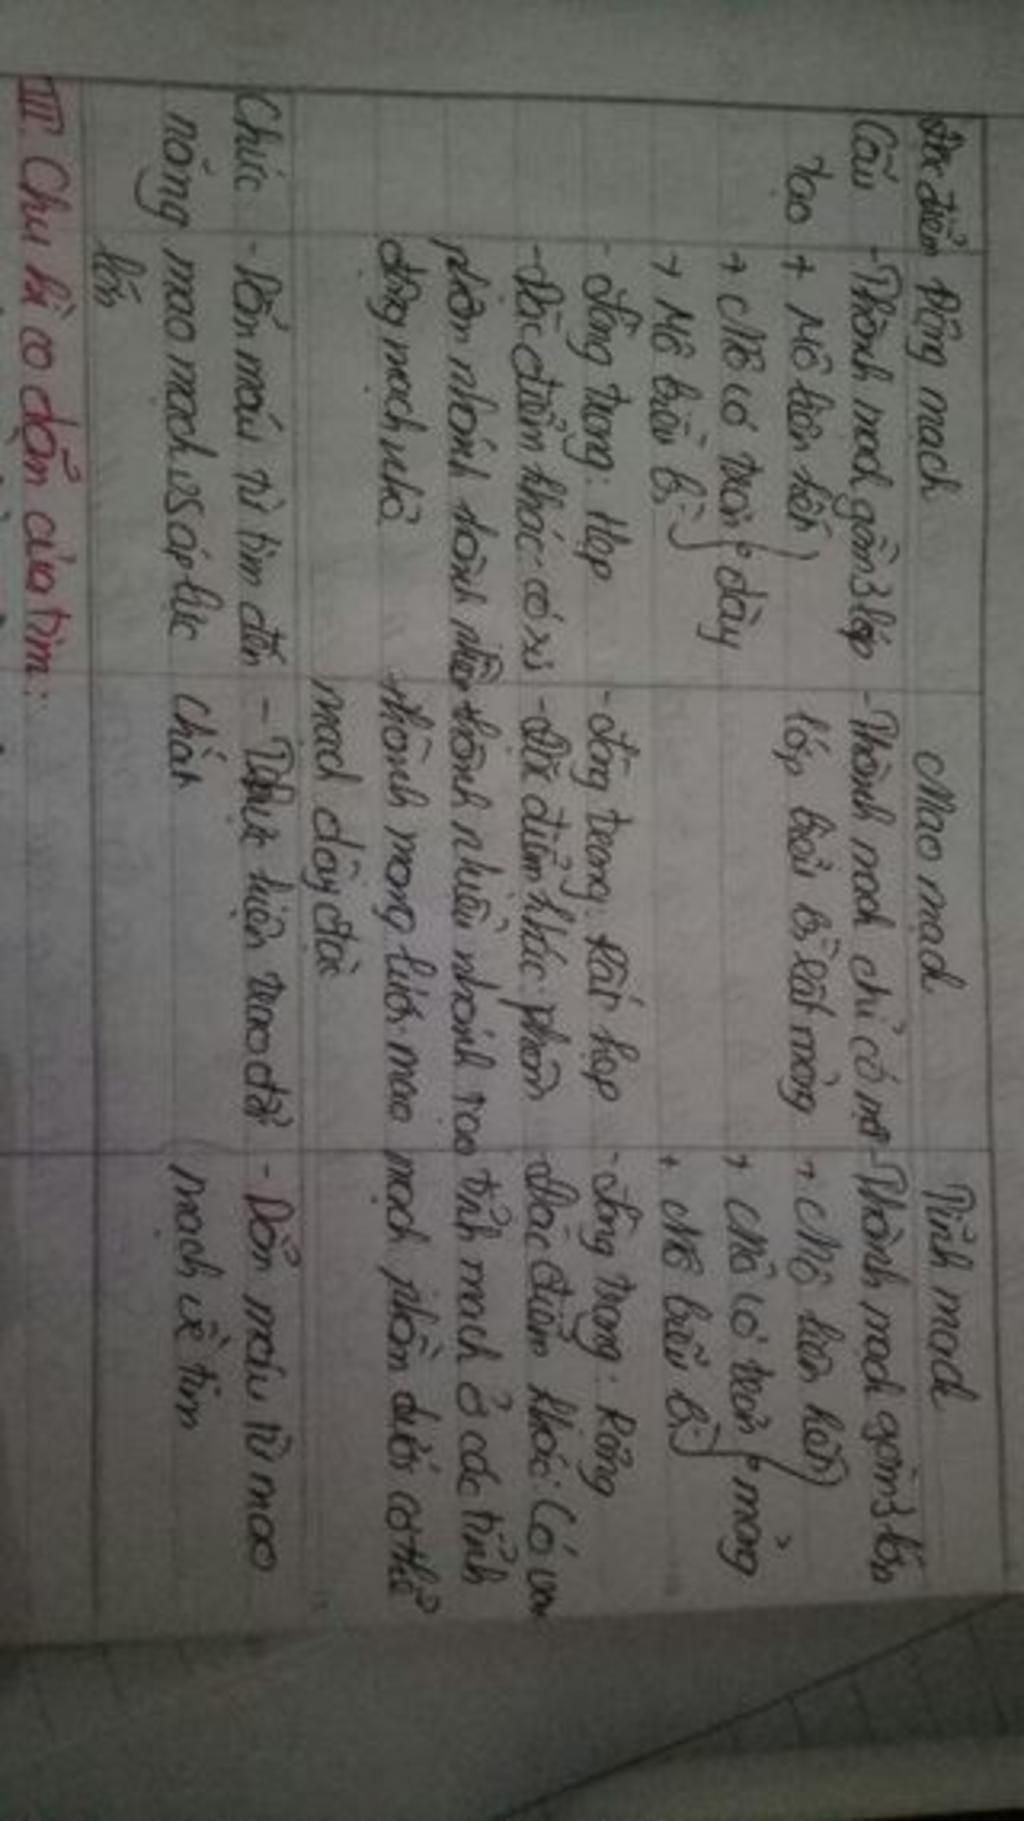 Đặc điểm Động mạch Mao mạch Tĩnh mạch
Cấu - Thành mạch gồm 3 lớp - Thành mạch chỉ có một - Thành mạch gồm 3 lớp
tạo + Mô liên kết lớp biểu bì rất mỏng + Mô liên kết
+ Mô cơ trơn dày + Mô cơ trơn mỏng
+ Mô biểu bì + Mô biểu bì
- Lòng trong: Hẹp - Lòng trong: Rất hẹp - Lòng trong: Rộng
- Đặc điểm khác: có - Đặc điểm khác: phân - Đặc điểm khác: Có van
phân nhánh thành nhiều thành nhiều nhánh tạo tĩnh mạch ở các tĩnh
động mạch nhỏ thành mạng lưới mao mạch phần dưới cơ thể
mạch dày đặc
Chức - Dẫn máu từ tim đến - Thực hiện trao đổi - Dẫn máu từ mao
năng mao mạch với áp lực chất mạch về tim
lớn
III. Chu kì co dãn của tim: